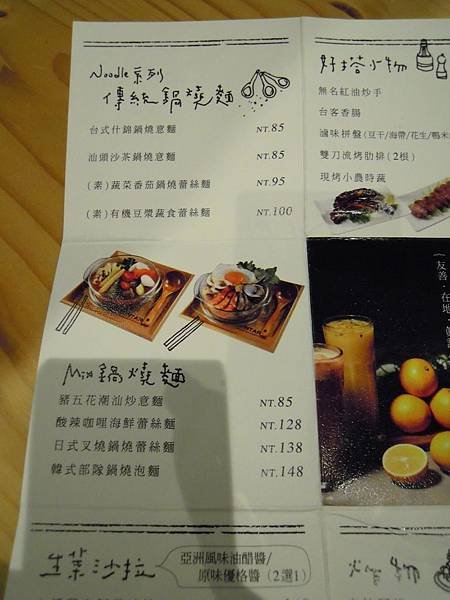 Noodle 系列
傳統鍋燒麵
台式什錦鍋燒意麵 NT.85
汕頭沙茶鍋燒意麵 NT.85
(素)蔬菜番茄鍋燒蕾絲麵 NT.95
(素)有機豆漿蔬食蕾絲麵 NT.100
Mix鍋燒麵
豬五花潮汕炒意麵 NT.85
酸辣咖哩海鮮蕾絲麵 NT.128
日式叉燒鍋燒蕾絲麵 NT.138
韓式部隊鍋燒泡麵 NT.148
生菜沙拉
亞洲風味油醋醬/
原味優格醬(2選1)
好搭小物
無名紅油炒手
台客香腸
滷味拼盤(豆干/海帶/花生/鴨米
雙刀流烤肋排(2根)
現烤小農時蔬
友善·在地